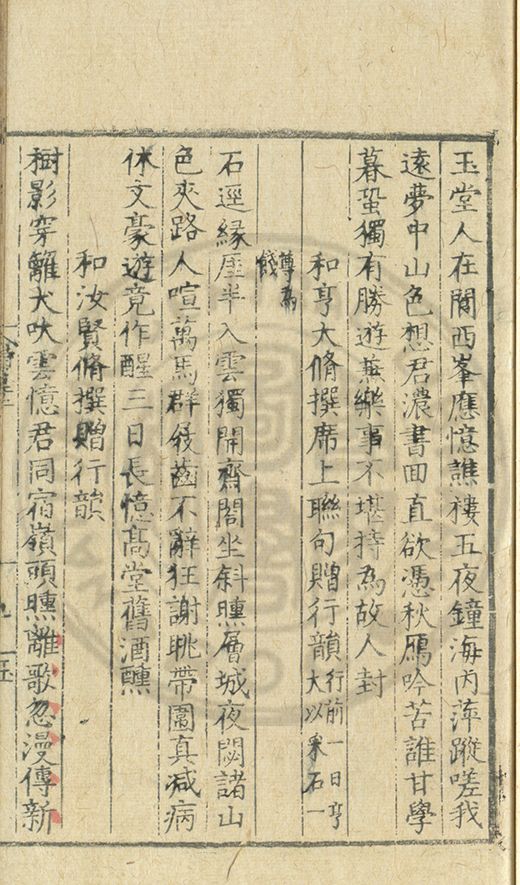 玉堂人在閬西峯應憶譙樓五夜鐘海內萍蹤嗟我
遠夢中山色想君濃書回直欲憑秋鴈吟苦誰甘學
暮蛩獨有勝遊兼樂事不堪持為故人封
和亨大脩撰席上聯句贈行韻行前一日亨大以采石一
罇為餞
石逕緣崖半入雲獨開齋閣坐斜曛層城夜閟諸山
色夾路人喧萬馬群發齒不辭狂謝眺帶圍真減病
休文豪遊竟作醒三日長憶高堂舊酒醺
和汝賢脩撰贈行韻
樹影穿籬犬吠雲憶君同宿嶺頭曛離歌忽漫傳新